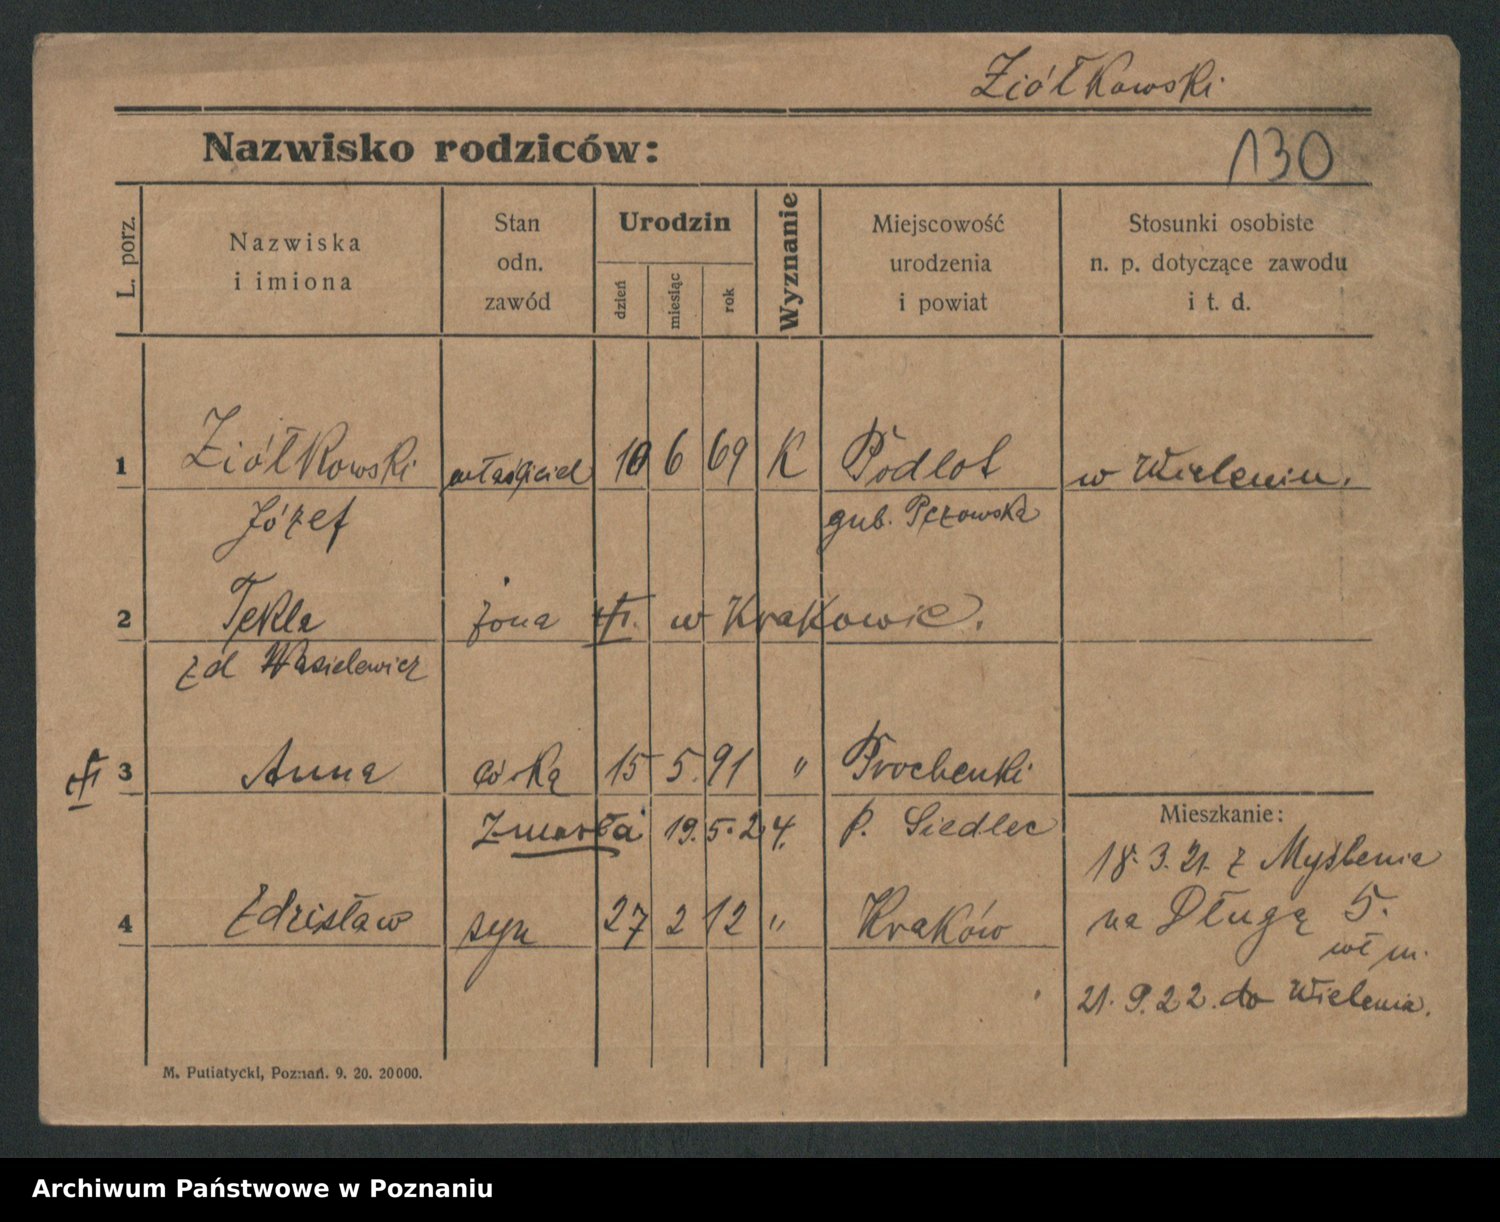 Ziółkowski
Nazwisko rodziców:
130
L. porz.
Nazwiska
i imiona
Stan
odn.
zawód
Urodzin
dzień
miesiąc
rok
Wyznanie
Miejscowość
urodzenia
i powiat
Stosunki osobiste
n. p. dotyczące zawodu
i t. d.
1 Ziółkowski właściciel 10 6 69 K Podlot w Wieleniu.
Józef gub.
2 Tekla żona w Krakowie.
zd Wasielewicz
3 Anna córka 15 5. 91 " Prochenki
zmarła 19. 5. 24. p. Siedlec
Mieszkanie:
18. 3. 21. z
4 Zdzisław syn 27 2 12 " Kraków
na Długą 5.
wł m.
21. 9. 22. do Wielenia.
M. Putiatycki, Poznań. 9. 20. 20000.
Archiwum Państwowe w Poznaniu